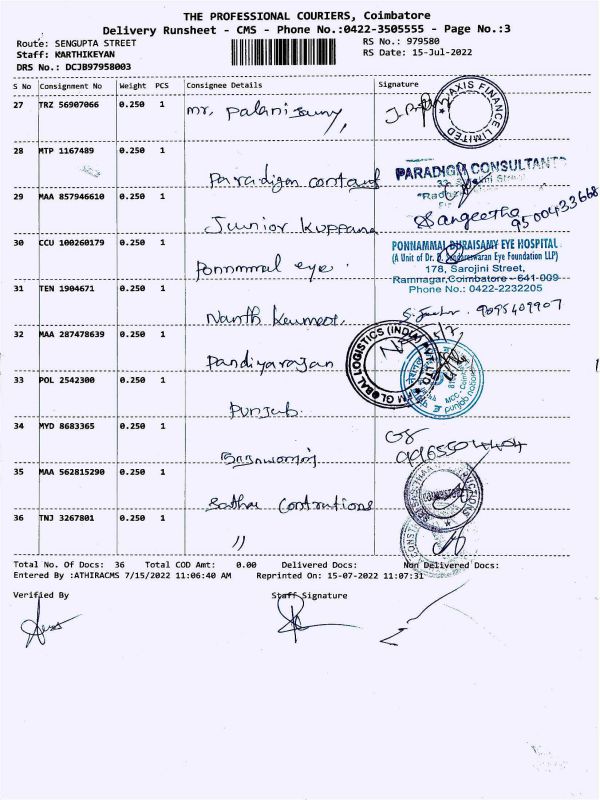 THE PROFESSIONAL COURIERS, Coimbatore
Delivery Runsheet - CMS - Phone No.:0422-3505555 - Page No.:3
Route: SENGUPTA STREET
RS No.: 979580
Staff: KARTHIKEYAN
RS Date: 15-Jul-2022
DRS No.: DCJB97958003
S No Consignment No Weight PCS Consignee Details Signature
27 TRZ 56907066 0.250 1 mr, palanisamy
AXIS FINANCE LIMITED
28 MTP 1167489 0.250 1 Paradigm
PARADIGM CONSULTANT
29 MAA 857946610 0.250 1 Junior Kuppana
Sangeetha
9500433668
30 CCU 100260179 0.250 1 Ponnammal eye.
PONNAMMAL DURAISAMY EYE HOSPITAL
(A Unit of Dr. Eye Foundation LLP)
178, Sarojini Street,
Ramnagar,Coimbatore - 641-009
Phone No.: 0422-2232205
31 TEN 1904671 0.250 1 Nanth
9095409907
32 MAA 287478639 0.250 1 Pandiyarajan
GLOBAL LOGISTICS (INDIA) PVT. LTD
33 POL 2542300 0.250 1 Punjab
punjab national
34 MYD 8683365 0.250 1
35 MAA 562815290 0.250 1 Satha Contrutions
36 TNJ 3267801 0.250 1 "
Total No. Of Docs: 36 Total COD Amt: 0.00 Delivered Docs: Non Delivered Docs:
Entered By :ATHIRACMS 7/15/2022 11:06:40 AM Reprinted On: 15-07-2022 11:07:31
Verified By Staff Signature